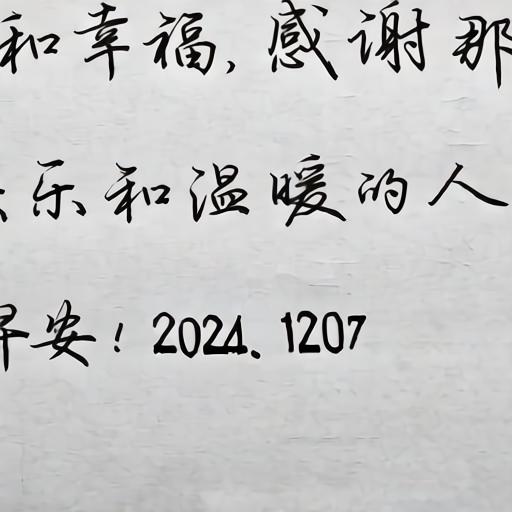 和幸福,感谢那
乐和温暖的人
早安!2024.1207